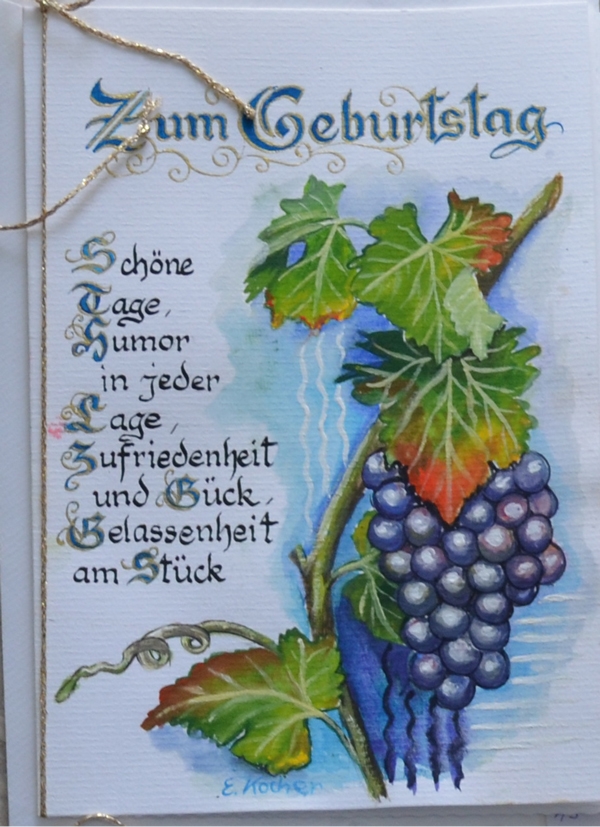 Zum Geburtstag
Schöne
Tage,
Humor
in jeder
Lage,
Zufriedenheit
und Gück,
Gelassenheit
am Stück
E. Kocher